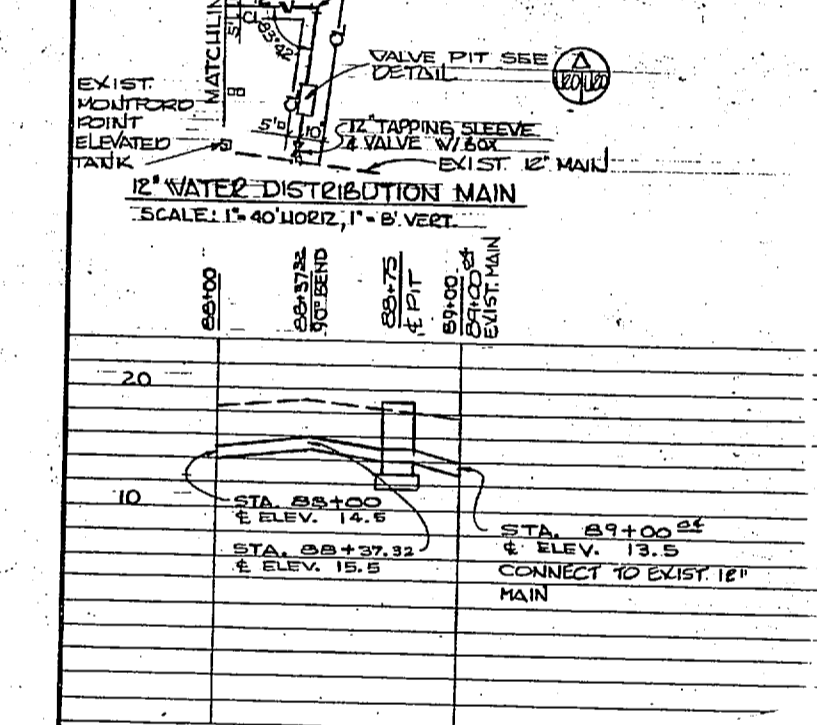 MATCHLIN
5'
CL
83°42'
CL
VALVE PIT SEE
DETAIL
A
U20 U20
EXIST.
MONTFORD
POINT
ELEVATED
TANK
CL
5'
10'
12" TAPPING SLEEVE
& VALVE W/BOX
EXIST. 12" MAIN
12" WATER DISTRIBUTION MAIN
SCALE: 1"=40' HORIZ, 1"=8' VERT.
88+00
88+37.32
90° BEND
88+75
℄ PIT
89+00
EXIST. MAIN
20
10
STA. 88+00
℄ ELEV. 14.5
STA. 88+37.32
℄ ELEV. 15.5
STA. 89+00
℄ ELEV. 13.5
CONNECT TO EXIST. 12"
MAIN